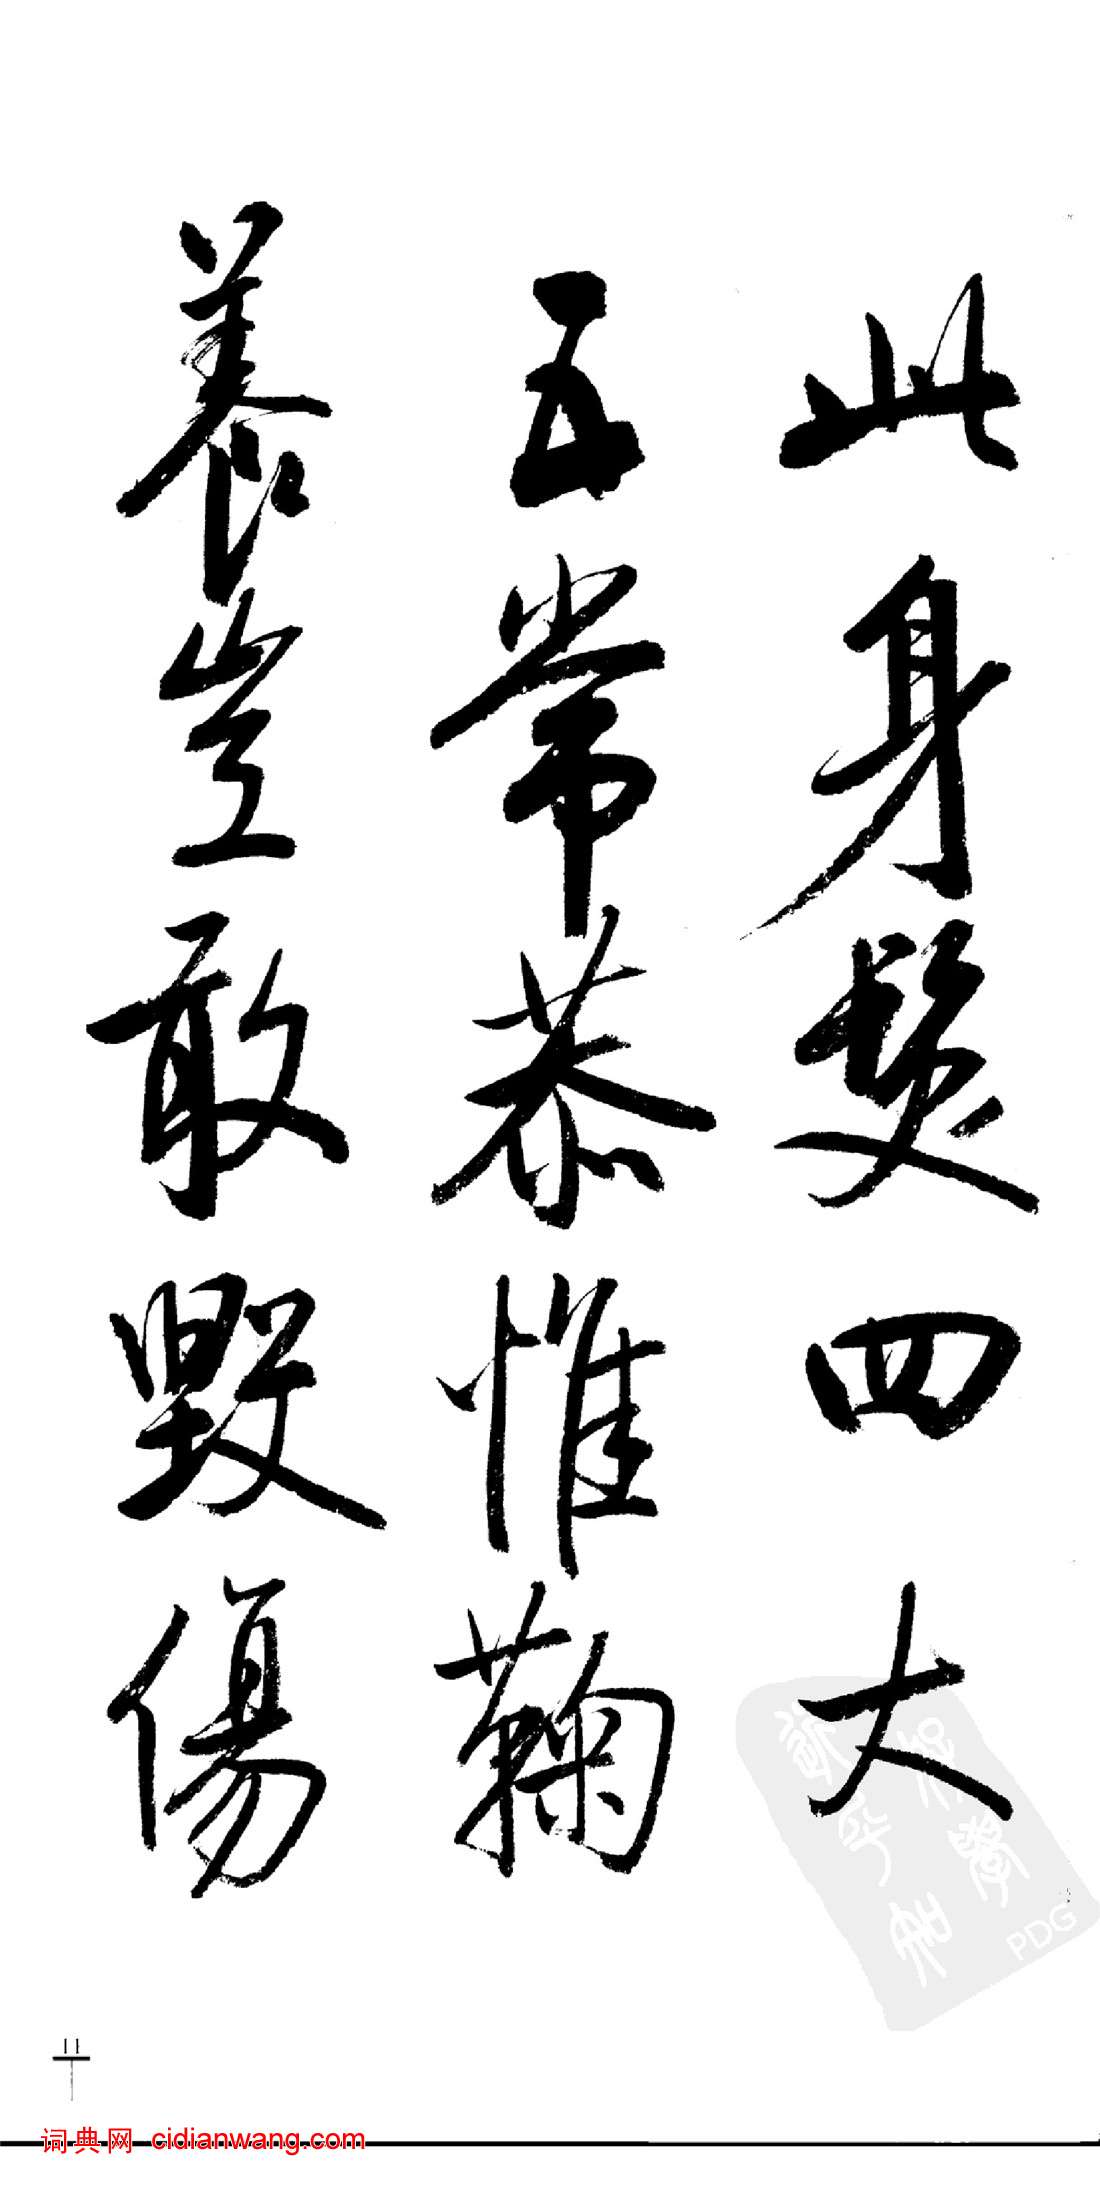 此身髮四大
五常恭惟鞠
養豈敢毀傷
PDG
11
词典网 cidianwang.com